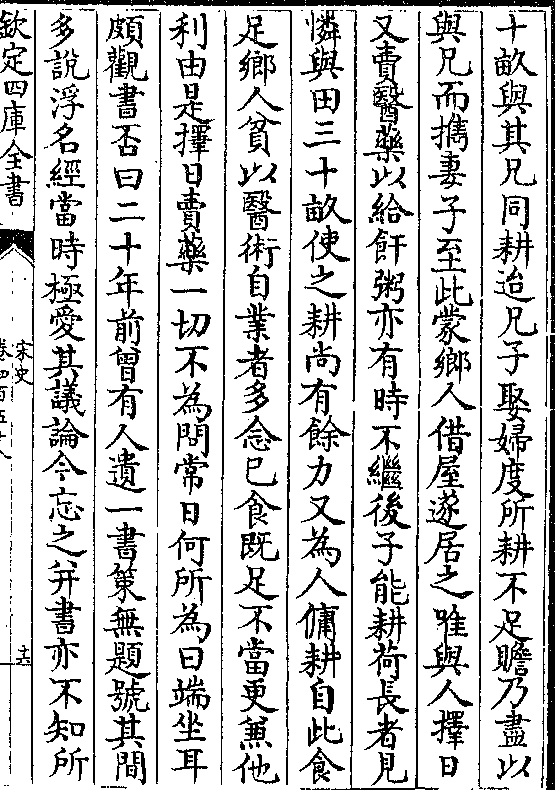 十畝與其兄同耕迨兄子娶婦度所耕不足贍乃盡以
與兄而擕妻子至此蒙鄉人借屋遂居之唯與人擇日
又賣醫藥以給飦粥亦有時不繼後子能耕荷長者見
憐與田三十畝使之耕尚有餘力又為人傭耕自此食
足鄉人貧以醫術自業者多念已食既足不當更兼他
利由是擇日賣藥一切不為問常日何所為曰端坐耳
頗觀書否曰二十年前曾有人遺一書策無題號其間
多說浮名經當時極愛其議論今忘之并書亦不知所
欽定四庫全書
宋史
卷四百五十八
十六